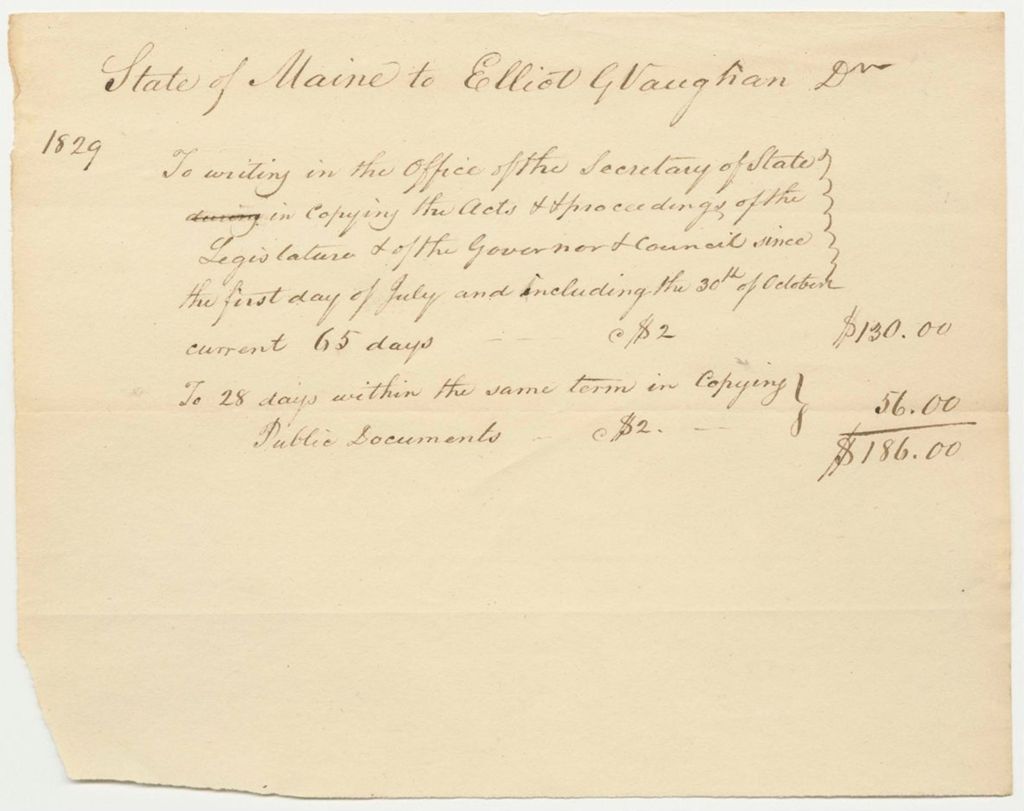 State of Maine to Elliot G Vaughan Dr
1829
To writing in the Office of the Secretary of State
during in Copying the Acts & proceedings of the
Legislature & of the Governor & Council since
the first day of July and including the 30th of October
current 65 days @ $2 $130.00
To 28 days within the same term in Copying
Public Documents @ $2. 56.00
$186.00